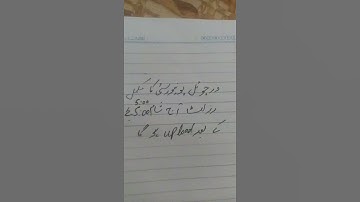 ورچوئل یونیورسٹی کا مکمل
رزلٹ آج شام 5:00 بجے
کے بعد upload ہو گا